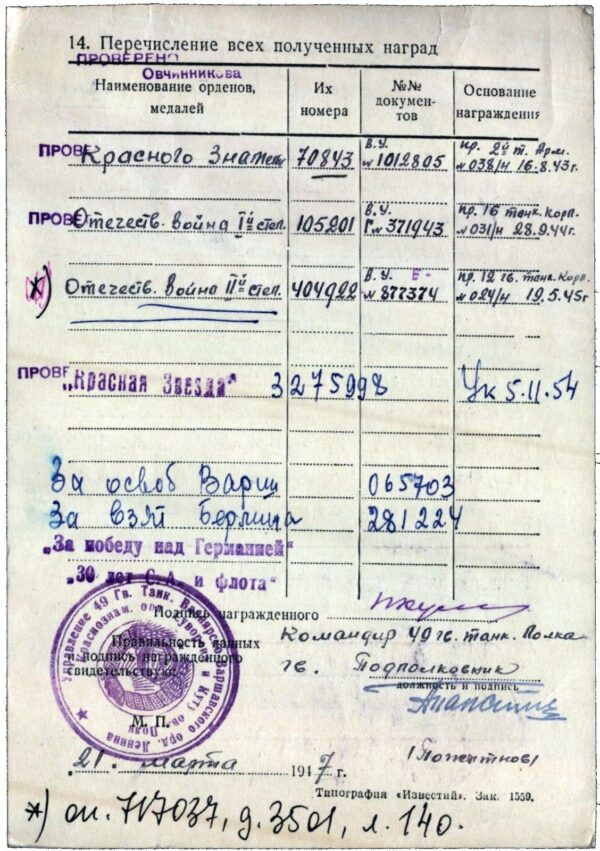 14. Перечисление всех полученных наград
ПРОВЕРЕНО
Овчинникова
Наименование орденов, медалей
Их номера
№№ докумен-тов
Основание награждения
ПРОВЕ Красного Знамени 70843 В.У. №1012805 пр. 2й т. Арм. №038/н 16.8.43г.
ПРОВЕ Отечеств. война Iй степ. 105201 В.У. Г №371943 пр. 16 танк. корп. №031/н 28.9.44г.
*) Отечеств. война IIй степ. 404922 В.У. №877374 пр. 12 гв. танк. корп. №024/н 19.5.45г
ПРОВЕ „Красная Звезда" 3275998 Ук 5.11.54
За освоб Варш 065703
За взят Берлина 281224
„За победу над Германией"
„30 лет С.А. и флота"
Подпись награжденного
Правильность данных
и подпись награжденного
свидетельствую:
Командир 49 гв. танк. Полка
гв. Подполковник
должность и подпись
М. П.
Управление 49 Гв. Танк. Варшавского орд. Ленина
„21." марта 1947 г.
Типография «Известий». Зак. 1559.
*) оп. 717037, д. 3501, л. 140.